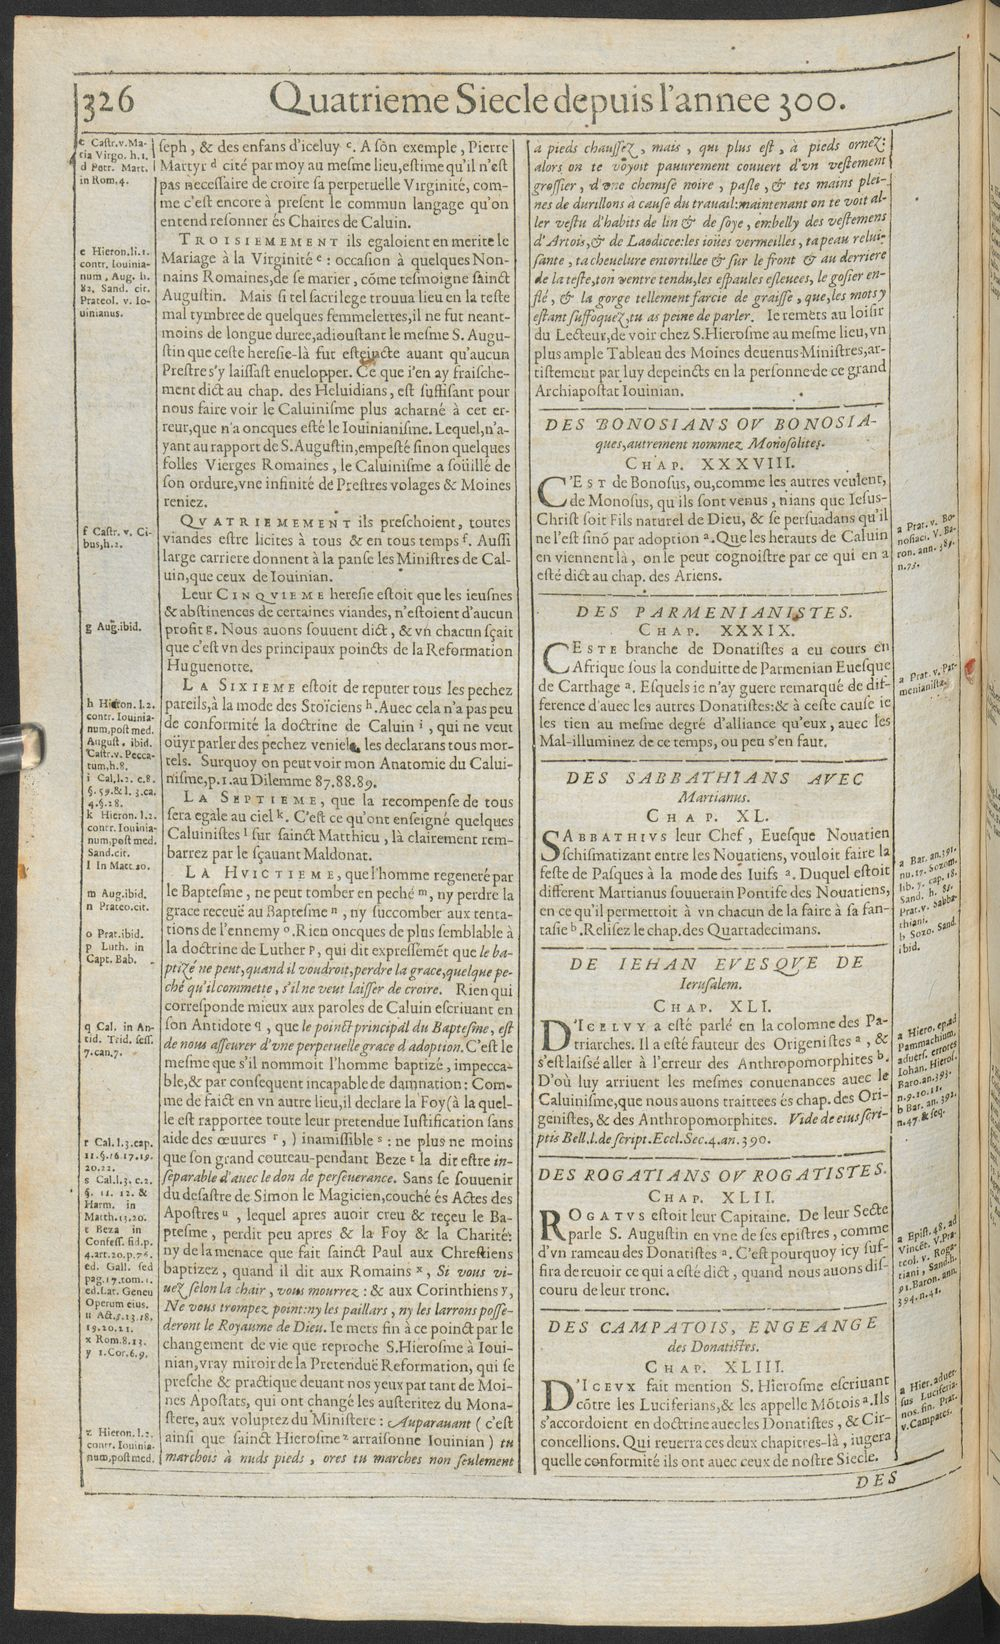 326
Quatrieme Siecle depuis l'annee 300.
c Castr.v.Ma-
ria Virgo. h.1.
d Petr. Mart.
in Rom.4.
e Hieron.li.1.
contr. Iouinia-
num, Aug. h.
82. Sand. cit.
Prateol. v. Io-
uinianus.
f Castr. v. Ci-
bus,h.2.
g Aug.ibid.
h Hieron. l.2.
contr. Iouinia-
num,post med.
August. ibid.
Castr.v. Pecca-
tum,h.8.
i Cal,l.2. c.8.
§.59.& l. 3.ca.
4.§.28.
k Hieron. l.2.
contr. Iouinia-
num,post med.
Sand.cit.
l In Matt.20.
m Aug.ibid.
n Prateo.cit.
o Prat.ibid.
p Luth. in
Capt. Bab.
q Cal. in An-
tid. Trid. sess.
7.can.7.
r Cal. l.3.cap.
11.§.16.17.19.
20.22.
s Cal.l.3. c.2.
§. 11. 12. &
Harm. in
Matth.13.20.
t Beza in
Confess. fid.p.
4.art.20.p.76.
ed. Gall. sed
pag.17.tom.1.
ed.Lat. Geneu
Operum eius.
u Act.8.13.18.
19.20.21.
x Rom.8.13.
y 1.Cor.6.9.
z Hieron. l.2.
contr. Iouinia-
num,post med.
seph, & des enfans d'iceluy c. A son exemple, Pierre
Martyr d cité par moy au mesme lieu,estime qu'il n'est
pas necessaire de croire sa perpetuelle Virginité, com-
me c'est encore à present le commun langage qu'on
entend resonner és Chaires de Caluin.
TROISIEMEMENT ils egaloient en merite le
Mariage à la Virginité e : occasion à quelques Non-
nains Romaines,de se marier, cõme tesmoigne sainct
Augustin. Mais si tel sacrilege trouua lieu en la teste
mal tymbree de quelques femmelettes,il ne fut neant-
moins de longue duree,adioustant le mesme S. Augu-
stin que ceste heresie-là fut esteincte auant qu'aucun
Prestre s'y laissast enuelopper. Ce que i'en ay fraische-
ment dict au chap. des Heluidians, est suffisant pour
nous faire voir le Caluinisme plus acharné à cet er-
reur,que n'a oncques esté le Iouinianisme. Lequel,n'a-
yant au rapport de S.Augustin,empesté sinon quelques
folles Vierges Romaines, le Caluinisme a soüillé de
son ordure,vne infinité de Prestres volages & Moines
reniez.
QVATRIEMEMENT ils preschoient, toutes
viandes estre licites à tous & en tous temps f. Aussi
large carriere donnent à la panse les Ministres de Cal-
uin,que ceux de Iouinian.
Leur CINQVIEME heresie estoit que les ieusnes
& abstinences de certaines viandes, n'estoient d'aucun
profit g. Nous auons souuent dict, & vn chacun sçait
que c'est vn des principaux poincts de la Reformation
Huguenotte.
LA SIXIEME estoit de reputer tous les pechez
pareils,à la mode des Stoïciens h. Auec cela n'a pas peu
de conformité la doctrine de Caluin i , qui ne veut
oüyr parler des pechez veniels, les declarans tous mor-
tels. Surquoy on peut voir mon Anatomie du Calui-
nisme,p.1.au Dilemme 87.88.89.
LA SEPTIEME, que la recompense de tous
sera egale au ciel k. C'est ce qu'ont enseigné quelques
Caluinistes l sur sainct Matthieu, là clairement rem-
barrez par le sçauant Maldonat.
LA HVICTIEME, que l'homme regeneré par
le Baptesme, ne peut tomber en peché m, ny perdre la
grace receuë au Baptesme n, ny succomber aux tenta-
tions de l'ennemy o.Rien oncques de plus semblable à
la doctrine de Luther p, qui dit expressemēt que le ba-
ptizé ne peut,quand il voudroit,perdre la grace,quelque pe-
ché qu'il commette, s'il ne veut laisser de croire. Rien qui
corresponde mieux aux paroles de Caluin escriuant en
son Antidote q, que le poinct principal du Baptesme, est
de nous asseurer d'vne perpetuelle grace d'adoption. C'est le
mesme que s'il nommoit l'homme baptizé, impecca-
ble,& par consequent incapable de damnation: Com-
me de faict en vn autre lieu,il declare la Foy (à la quel-
le est rapportee toute leur pretenduë Iustification sans
aide des œuures r, ) inamissible s : ne plus ne moins
que son grand couteau-pendant Beze t la dit estre in-
separable d'auec le don de perseuerance. Sans se souuenir
du desastre de Simon le Magicien,couché és Actes des
Apostres u, lequel apres auoir creu & reçeu le Ba-
ptesme, perdit peu apres & la Foy & la Charité:
ny de la menace que fait sainct Paul aux Chrestiens
baptizez, quand il dit aux Romains x, Si vous vi-
uez selon la chair, vous mourrez : & aux Corinthiens y,
Ne vous trompez point:ny les paillars, ny les larrons posse-
deront le Royaume de Dieu. Ie mets fin à ce poinct par le
changement de vie que reproche S.Hierosme à Ioui-
nian,vray miroir de la Pretenduë Reformation, qui se
presche & practique deuant nos yeux par tant de Moi-
nes Apostats, qui ont changé les austeritez du Mona-
stere, aux voluptez du Ministere : Auparauant (c'est
ainsi que sainct Hierosme z arraisonne Iouinian) tu
marchois à nuds pieds, ores tu marches non seulement
à pieds chaussez, mais, qui plus est, à pieds ornez:
alors on te voyoit pauurement couuert d'vn vestement
grossier, d'vne chemise noire, pasle, & tes mains plei-
nes de durillons à cause du trauail:maintenant on te voit al-
ler vestu d'habits de lin & de soye, embelly des vestemens
d'Artois,& de Laodicee:les ioües vermeilles, ta peau relui-
sante, ta cheuelure entortillee & sur le front & au derriere
de la teste,ton ventre tendu,les espaules esleuees, le gosier en-
flé, & la gorge tellement farcie de graisse, que,les mots y
estant suffoquez,tu as peine de parler. Ie remets au loisir
du Lecteur,de voir chez S.Hierosme au mesme lieu,vn
plus ample Tableau des Moines deuenus Ministres,ar-
tistement par luy depeincts en la personne de ce grand
Archiapostat Iouinian.
DES BONOSIANS OV BONOSIA-
ques,autrement nommez Monosolites.
CHAP. XXXVIII.
C'EST de Bonosus, ou,comme les autres veulent,
de Monosus, qu'ils sont venus, nians que Iesus-
Christ soit Fils naturel de Dieu, & se persuadans qu'il
ne l'est sinõ par adoption a.Que les herauts de Caluin
en viennent là, on le peut cognoistre par ce qui en a
esté dict au chap. des Ariens.
a Prat. v. Bo-
nosiaci. V. Ba-
ron. ann. 389.
n.75.
DES PARMENIANISTES.
CHAP. XXXIX.
CESTE branche de Donatistes a eu cours en
Afrique sous la conduitte de Parmenian Euesque
de Carthage a. Esquels ie n'ay guere remarqué de dif-
ference d'auec les autres Donatistes:& à ceste cause ie
les tien au mesme degré d'alliance qu'eux, auec les
Mal-illuminez de ce temps, ou peu s'en faut.
a Prat. v. Par-
menianista.
DES SABBATHIANS AVEC
Martianus.
CHAP. XL.
SABBATHIVS leur Chef, Euesque Nouatien
schismatizant entre les Nouatiens, vouloit faire la
feste de Pasques à la mode des Iuifs a. Duquel estoit
different Martianus souuerain Pontife des Nouatiens,
en ce qu'il permettoit à vn chacun de la faire à sa fan-
tasie b.Relisez le chap.des Quartadecimans.
a Bar. an.391.
nu.17. Sozom.
lib. 7. cap. 18.
Sand. h. 85.
Prat.v. Sabba-
thiani.
b Sozo. Sand.
ibid.
DE IEHAN EVESQVE DE
Ierusalem.
CHAP. XLI.
D'ICELVY a esté parlé en la colomne des Pa-
triarches. Il a esté fauteur des Origenistes a, &
s'est laissé aller à l'erreur des Anthropomorphites b.
D'où luy arriuent les mesmes conuenances auec le
Caluinisme,que nous auons traittees és chap. des Ori-
genistes, & des Anthropomorphites. Vide de eius scri-
ptis Bell.l.de script.Eccl.Sec.4.an.390.
a Hiero, ep.ad
Pammachium,
aduers. errores
Iohan. Hierof.
Baro.an.393.
n.9.10.11.
b Bar. an. 392.
n.47.& seq.
DES ROGATIANS OV ROGATISTES.
CHAP. XLII.
ROGATVS estoit leur Capitaine. De leur Secte
parle S. Augustin en vne de ses epistres, comme
d'vn rameau des Donatistes a. C'est pourquoy icy suf-
fira de reuoir ce qui a esté dict, quand nous auons dis-
couru de leur tronc.
a Epist. 48. ad
Vincēt. V.Pra-
teol. v. Roga-
tiani, Sand.h.
91.Baron. ann.
394.n.41.
DES CAMPATOIS, ENGEANCE
des Donatistes.
CHAP. XLIII.
D'ICEVX fait mention S. Hierosme escriuant
cõtre les Luciferians,& les appelle Mõtois a.Ils
s'accordoient en doctrine auec les Donatistes, & Cir-
concellions. Qui reuerra ces deux chapitres-là, iugera
quelle conformité ils ont auec ceux de nostre Siecle.
a Hier.aduer-
sus Luciferia-
nos.fin. Prat.
v.Campates.
DES